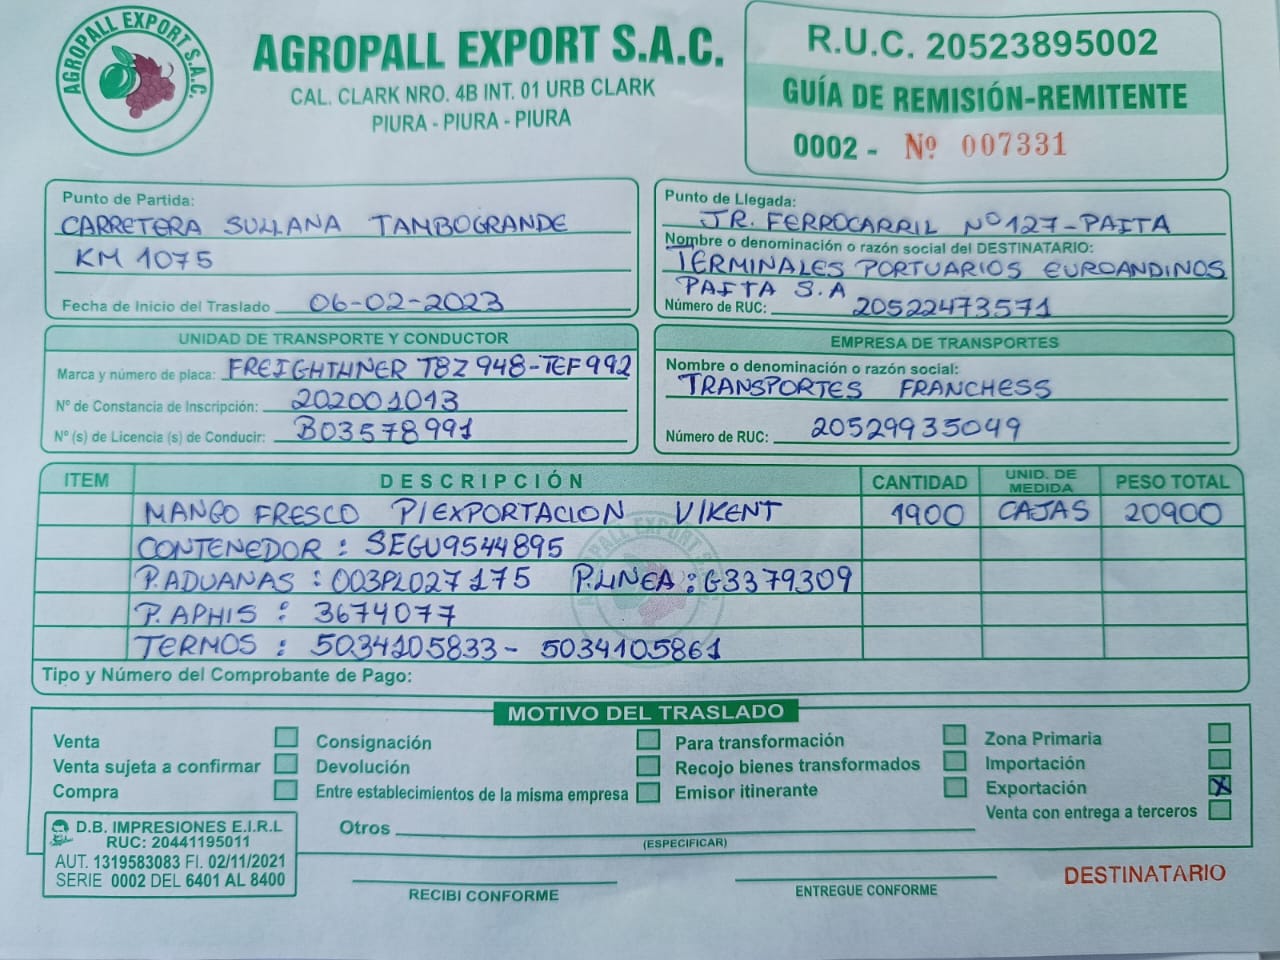 AGROPALL EXPORT S.A.C.
AGROPALL EXPORT S.A.C.
CAL. CLARK NRO. 4B INT. 01 URB CLARK
PIURA - PIURA - PIURA
R.U.C. 20523895002
GUÍA DE REMISIÓN-REMITENTE
0002 - Nº 007331
Punto de Partida:
CARRETERA SULLANA TAMBOGRANDE
KM 1075
Fecha de Inicio del Traslado 06-02-2023
Punto de Llegada:
JR. FERROCARRIL Nº 127-PAITA
Nombre o denominación o razón social del DESTINATARIO:
TERMINALES PORTUARIOS EUROANDINOS
PAITA S.A
Número de RUC: 20522473571
UNIDAD DE TRANSPORTE Y CONDUCTOR
Marca y número de placa: FREIGHTHNER T8Z 948-TEF992
Nº de Constancia de Inscripción: 202001013
Nº (s) de Licencia (s) de Conducir: B03578991
EMPRESA DE TRANSPORTES
Nombre o denominación o razón social:
TRANSPORTES FRANCHESS
Número de RUC: 20529935049
ITEM DESCRIPCIÓN CANTIDAD UNID. DE MEDIDA PESO TOTAL
MANGO FRESCO P/EXPORTACION V/KENT 1900 CAJAS 20900
CONTENEDOR : SEGU9544895
P.ADUANAS : 003PL027175 P.LINEA : G3379309
P. APHIS : 3674077
TERMOS : 5034105833 - 5034105861
AGROPALL EXPORT S.A.C.
Tipo y Número del Comprobante de Pago:
MOTIVO DEL TRASLADO
Venta
Venta sujeta a confirmar
Compra
Consignación
Devolución
Entre establecimientos de la misma empresa
Para transformación
Recojo bienes transformados
Emisor itinerante
Zona Primaria
Importación
Exportación X
Venta con entrega a terceros
Otros
(ESPECIFICAR)
D.B. IMPRESIONES E.I.R.L
RUC: 20441195011
AUT. 1319583083 FI. 02/11/2021
SERIE 0002 DEL 6401 AL 8400
RECIBI CONFORME
ENTREGUE CONFORME
DESTINATARIO